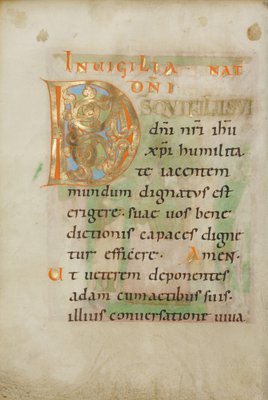 IN VIGILIA · NAT
DN̄I
DS QVI FILII SVI
dn̄i nr̄i ih̄u
xp̄i humilita
te iacentem
mundum dignatus est
erigere · suae uos bene
dictionis capaces digne
tur efficere · AMEN ·
Ut ueterem deponentes
adam cum actibus suis ·
illius conuersatione uiua